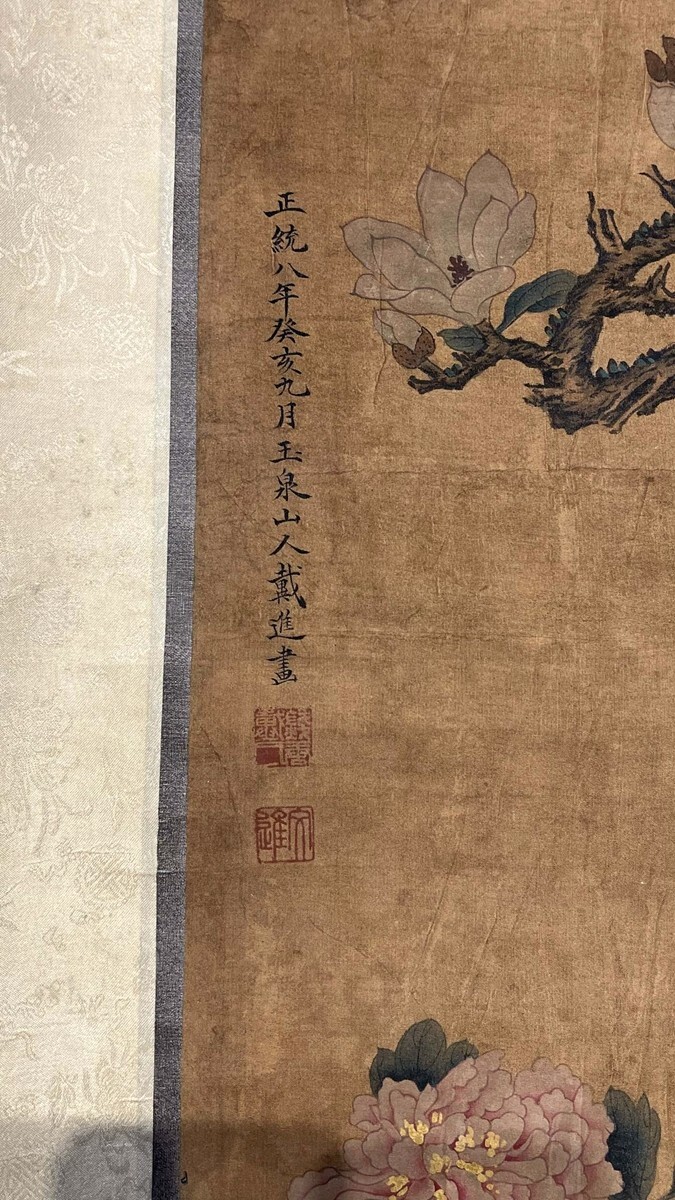 正統八年癸亥九月玉泉山人戴進畫
文進